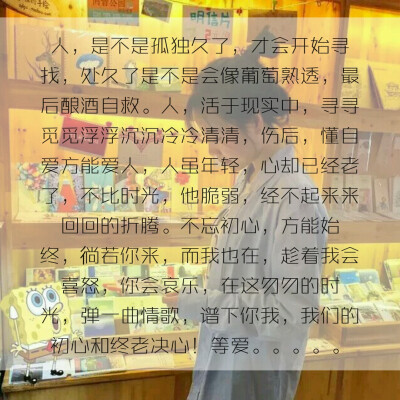 明信片
人，是不是孤独久了，才会开始寻
找，处久了是不是会像葡萄熟透，最
后酿酒自救。人，活于现实中，寻寻
觅觅浮浮沉沉冷冷清清，伤后，懂自
爱方能爱人，人虽年轻，心却已经老
了，不比时光，他脆弱，经不起来来
回回的折腾。不忘初心，方能始
终，徜若你来，而我也在，趁着我会
喜怒，你会哀乐，在这匆匆的时
光，弹一曲情歌，谱下你我，我们的
初心和终老决心！等爱。。。。。